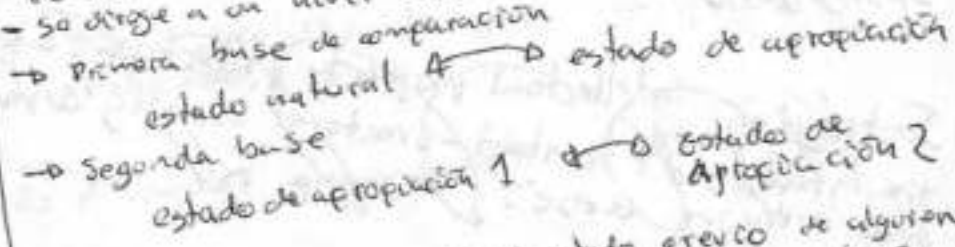 - se dirige a un
→ Primera base de comparación
estado natural ↔ estado de apropiación
→ Segunda base
estado de apropiación 1 ↔ Estado de Apropiación 2
de alguien